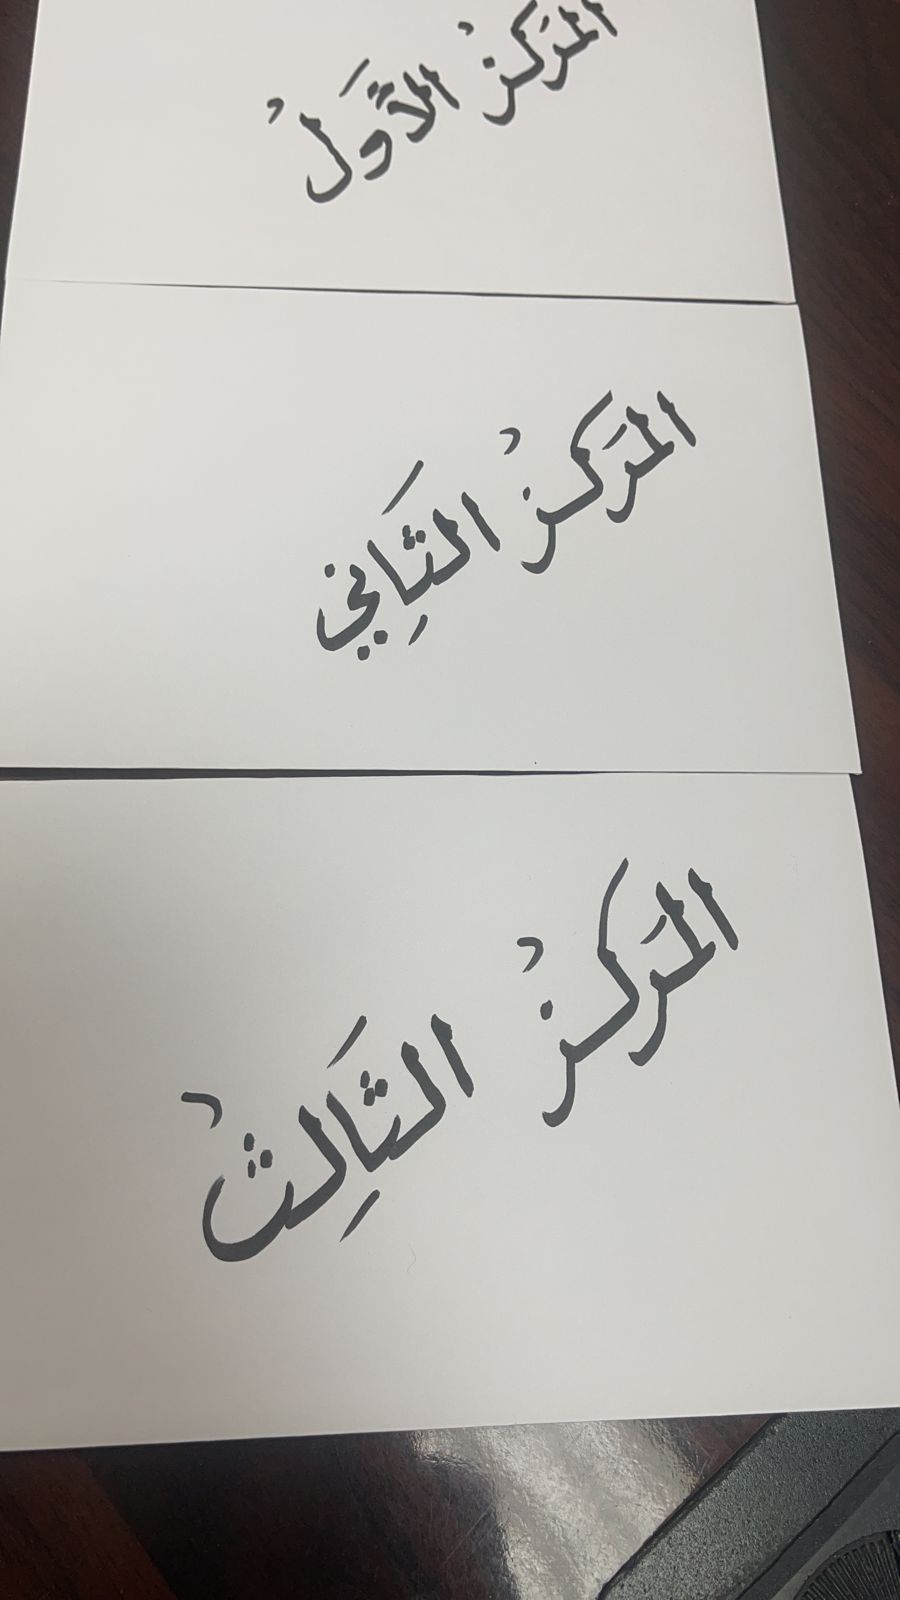 المَركزُ الأَوّلُ
المَركزُ الثَانِي
المَركزُ الثَالِثُ